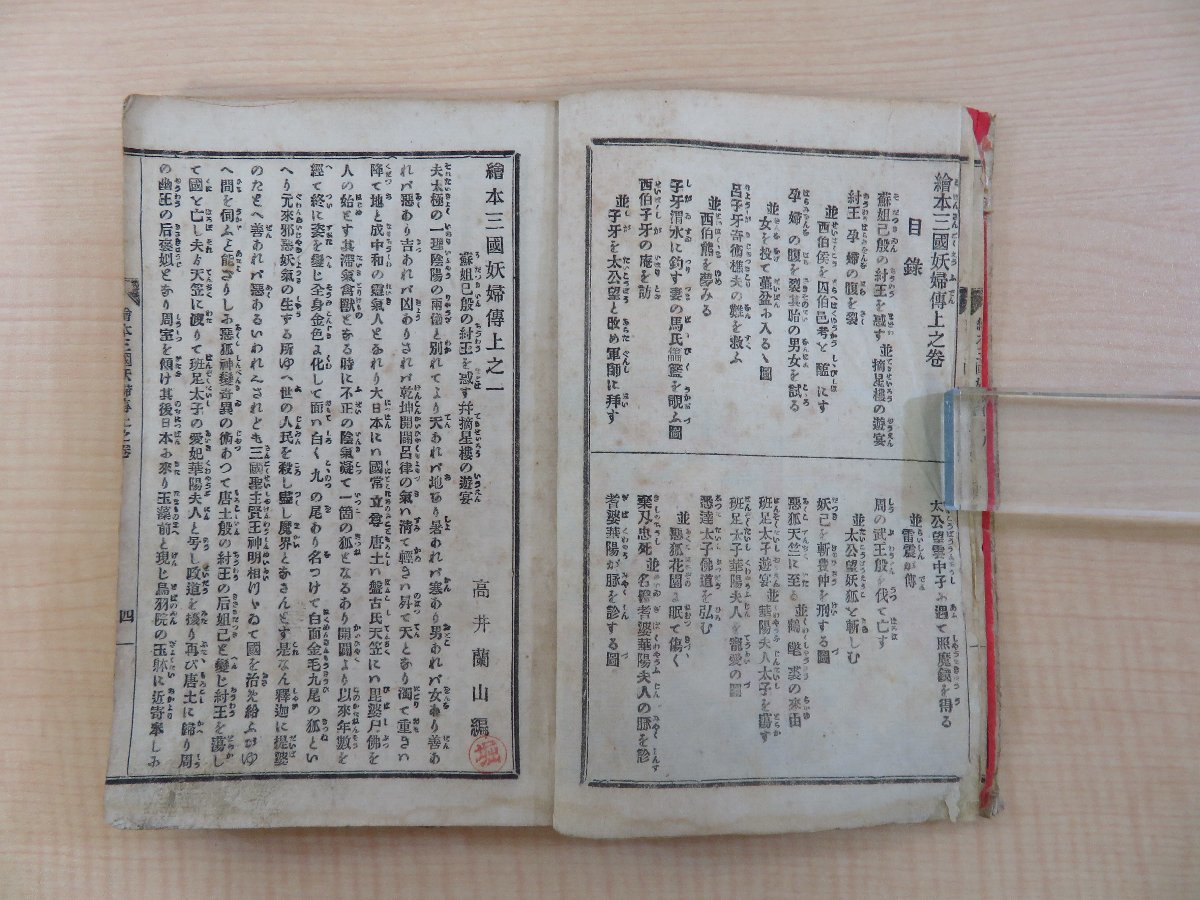 繪本三國妖婦傳上之卷
目錄
蘇妲己殷の紂王を惑す 並 摘星樓の遊宴
紂王孕婦の腹を裂
並 西伯侯を囚伯邑考を醢にす
孕婦の腹を裂其胎の男女を試る
並 女を投て蠆盆お入るゝ圖
呂子牙奇術樵夫の難を救ふ
並 西伯熊を夢みる
子牙渭水に釣す妻の馬氏籃を覗ふ圖
西伯子牙の庵を訪
並 子牙を太公望と改め軍師に拜す
太公望雲中子お遇て照魔鏡を得る
並 雷震が傳
周の武王殷を伐て亡す
並 太公望妖狐を斬しむ
妖己を斬費仲を刑する圖
惡狐天竺に至る 並 鶴氅裘の來由
班足太子遊宴 並 華陽夫人太子を蕩す
班足太子華陽夫人を寵愛の圖
悉達太子佛道を弘む
並 惡狐花園お眠て傷く
棄叉忠死 並 名醫耆婆華陽夫人の脉を診
耆婆華陽が脉を診する圖
繪本三國妖婦傳上之一
高井蘭山編
堀
蘇妲己殷の紂王を惑す 幷 摘星樓の遊宴
夫太極の一理陰陽の兩儀と別れてより天あれバ地あり暑あれバ寒あり男あれバ女あり善あ
れバ惡あり吉あれバ凶ありされバ乾坤開闢呂律の氣い淸て輕きい昇て天となり濁て重きい
降て地と成中和の靈氣人となれり大日本にい國常立尊唐土い盤古氏天竺にい毘婆尸佛を
人の始とす其滯氣禽獸となる時に不正の陰氣凝て一箇の狐となるあり開闢より以來年數を
經て終に姿を變じ全身金色お化して面い白く九の尾あり名つけて白面金毛九尾の狐とい
へり元來邪惡妖氣の生する所ゆへ世の人民を殺し盡し魔界となさんとす是なん釋迦に提婆
のたとへ善あれバ惡あるいわれへされども三國聖王賢王神明相けゐて國を治め給ふがゆ
へ間を伺ふと能さりしお惡狐神變奇異の術あつて唐土殷の紂王の后妲己と變じ紂王を蕩し
て國を亡し夫より天竺に渡りて班足太子の愛妃華陽夫人と号し政道を擾り再び唐土に歸り周
の幽王の后褒姒となり周室を傾け其後日本お來り玉藻前と現じ鳥羽院の玉躰に近寄奉しお
繪本三國妖婦傳上之卷
四